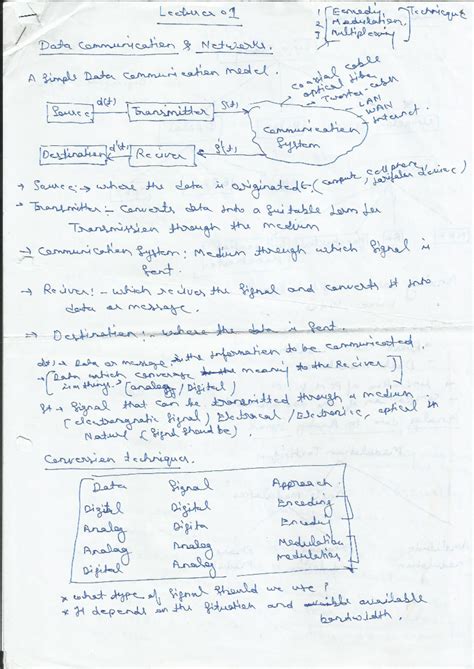 Lectures 01
1 Encoding
2 Modulation
3 Multiplexing
Technique
Data Communication & Networks.
A Simple Data Communication model.
coaxial cable
optical fiber
Twister-cable
LAN
WAN
Internet
Source d(t) Transmitter s(t)
Communication
System
Destination d'(t) Reciver s'(t)
→ Source :→ where the data is originated (compute, cell phone,
→ Transmitter :- Converts data into a Suitable form for
Transmission through the medium
→ Communication System : Medium through which Signal is
Sent.
→ Reciver :- which reciver the Signal and converts it into
data or message.
→ Destination :- where the data is Sent.
d(t) → Data or message is the information to be communicated.
→ [Data which converage the meaning to the Reciver]
2 in things. (analog / Digital)
S(t) → Signal that can be transmitted through a medium.
(electromagnetic Signal) Electrical / Electronic, optical in
Nature (Signal Should be).
Conversion techniques.
Data Signal Approach
Digital Digital Encoding
Analog Digita Encoding
Analog Analog Modulation
Digital Analog modulation
* what type of Signal Should we use ?
* It depends on the Situation and available
bandwidth.